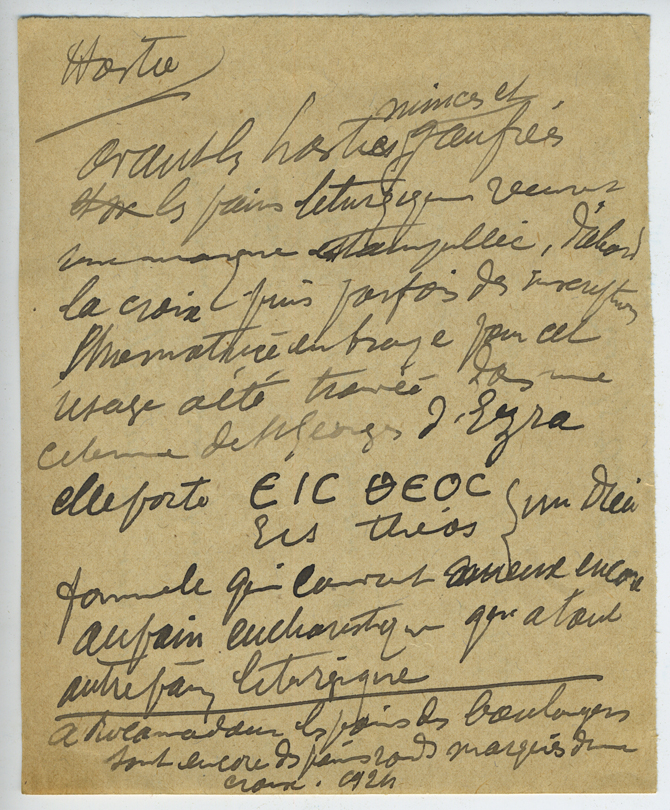 Hostie
minces et
avant les hosties gaufrés
les pains liturgiques
une marque estampillée, d'abord
la croix puis parfois des inscriptions
Une matrice en bronze pour cet
usage a été trouvée dans une
citerne de St Georges d'Ezra
elle porte ЄIC ΘЄOC } un Dieu
Eis théos
formule qui convient mieux encore
au pain eucharistique qu'a tout
autre pain liturgique
a Rocamadour les pains des boulangers
sont encore des pains ronds marqués d'une
croix. 1924